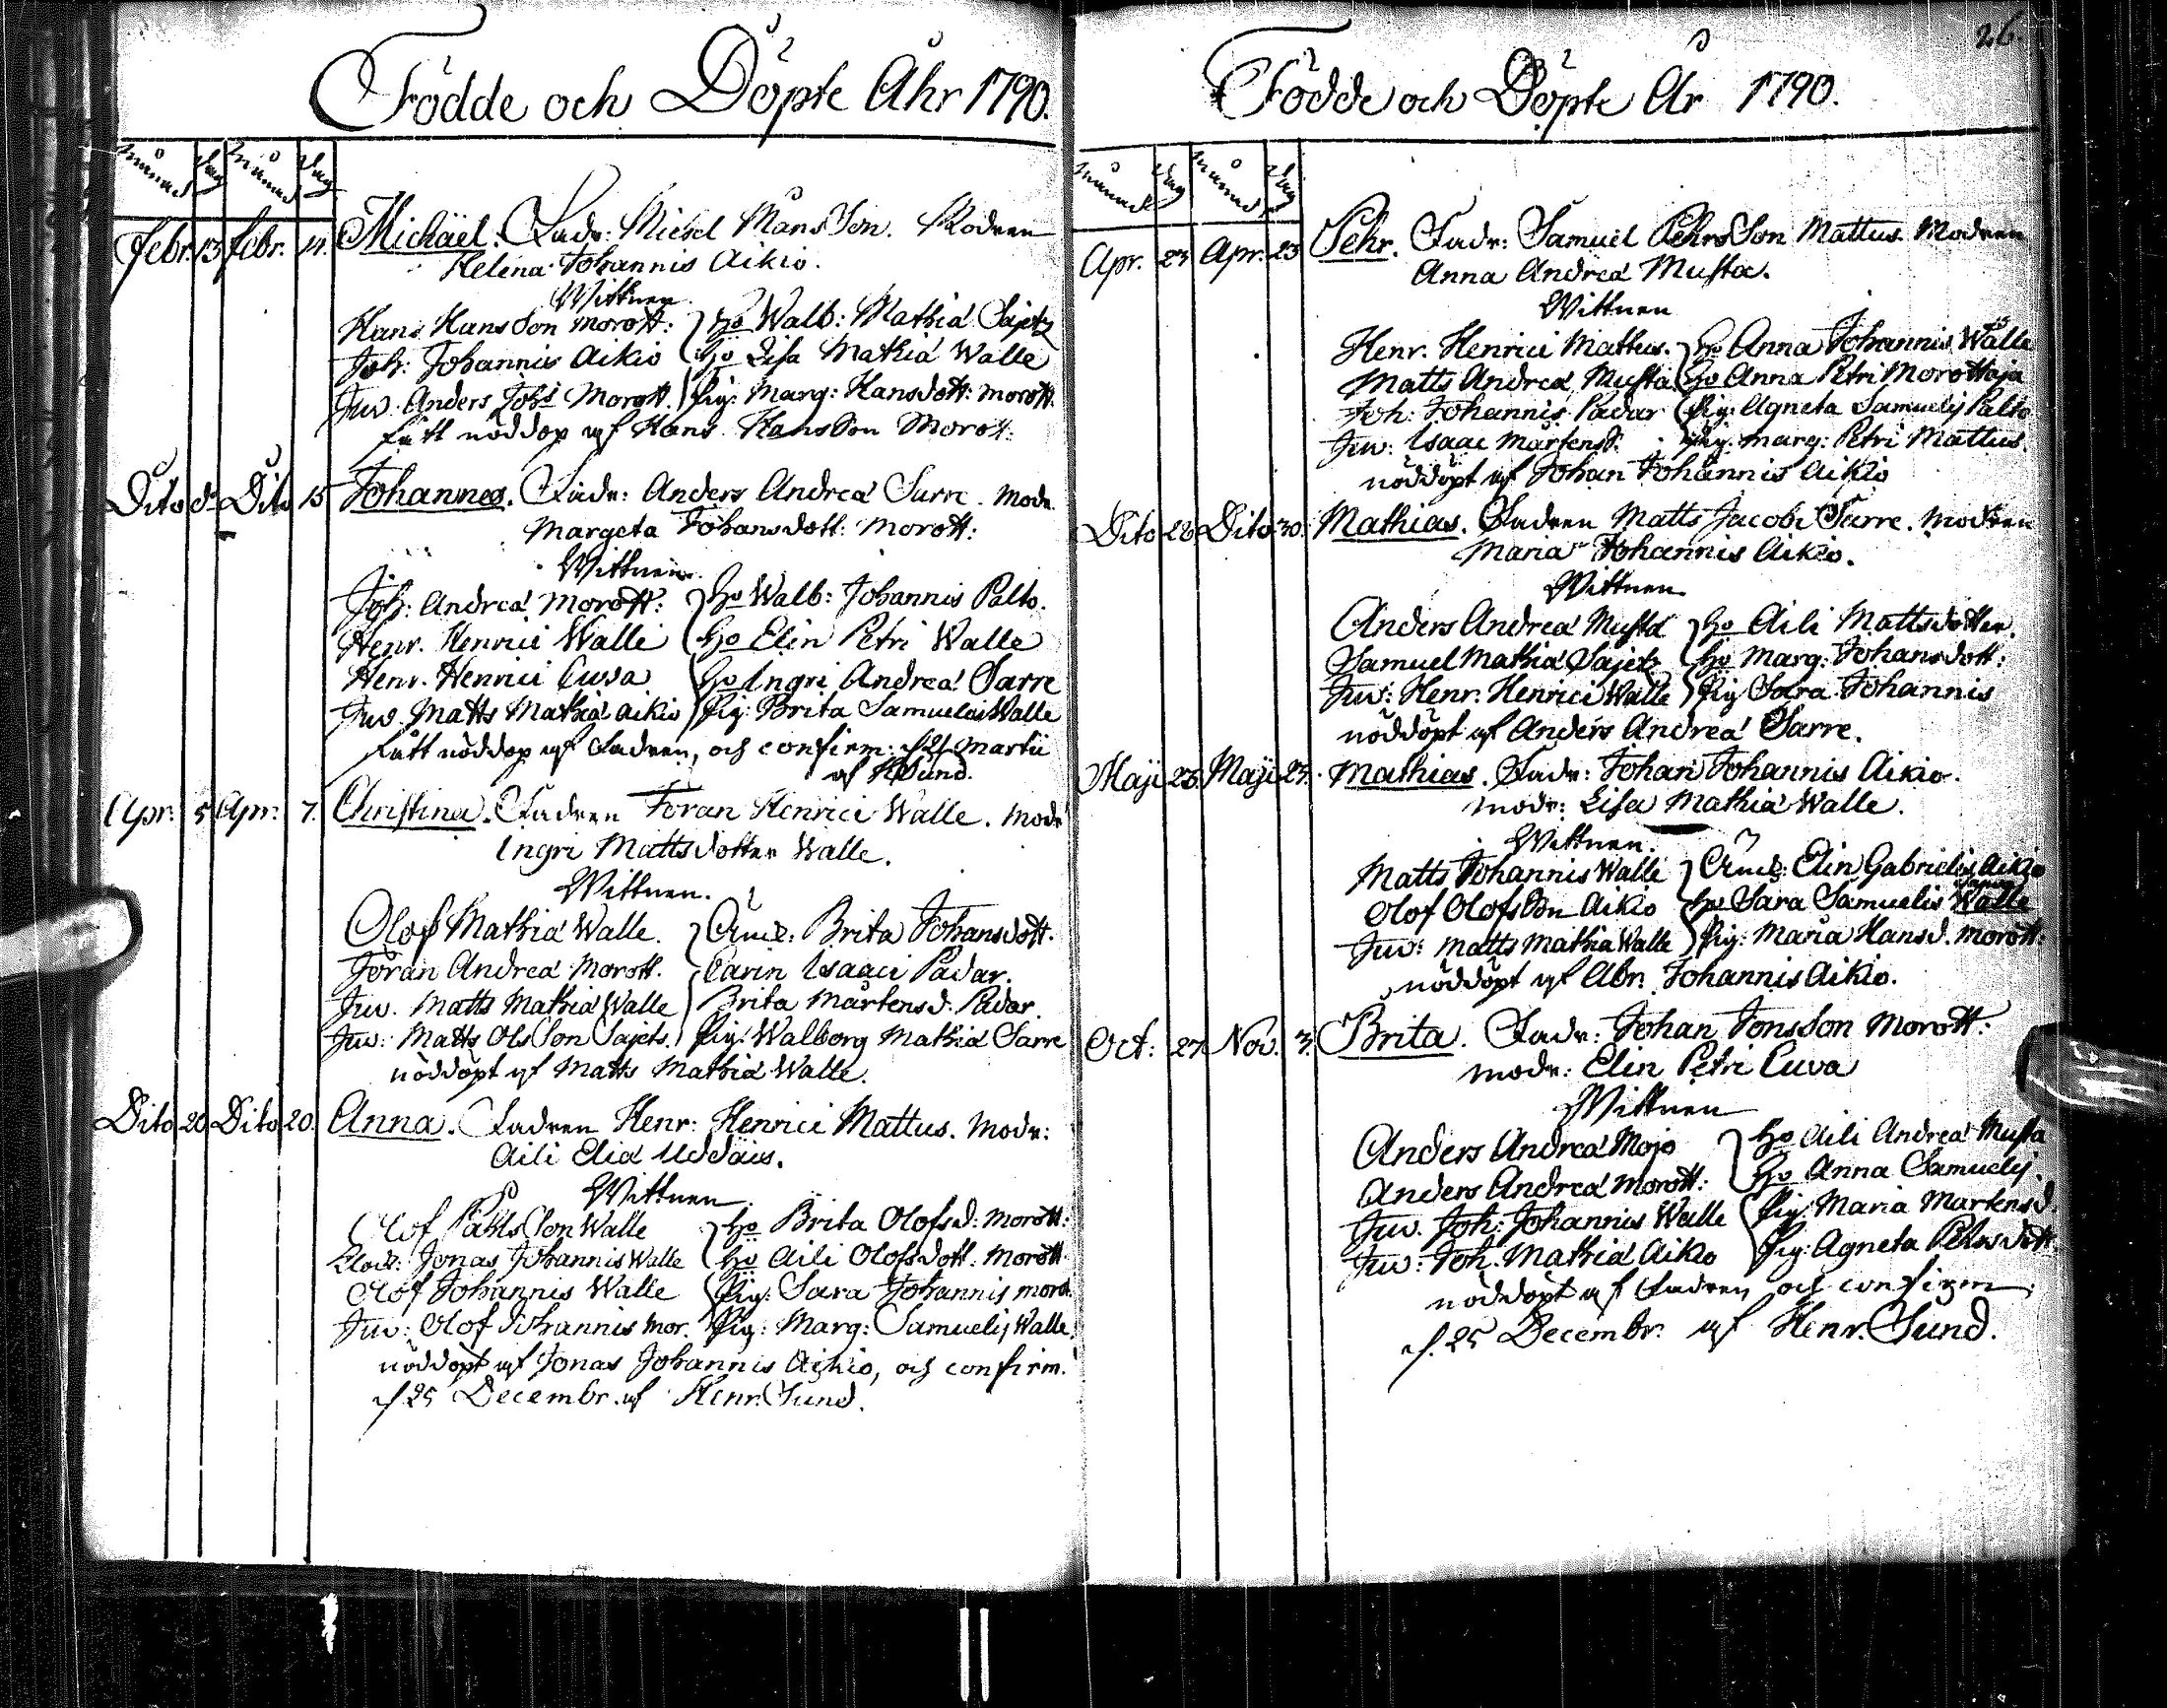 Födde och Döpte Åhr 1790.
månad Dag månad Dag
Febr. 13 Febr. 14. Michäel. Fadr: Michel MånsSon. Modren
Helena Johannis Aikio.
Wittnen.
Hans HansSon Morott: ho Walb: Mathiæ Sajetz
Joh: Johannis Aikio ho Lisa Mathiæ Walle
Juv. Anders Joh: Morott. Pig: Marg: Hansdott: Morott.
fått nöddop af Hans HansSon Morott:
Dito do Dito 15 Johannes. Fadr: Anders Andreæ Sarre. Modr.
Margeta Johansdott: Morott:
Wittnen.
Joh: Andreæ Morott: ho Walb: Johannis Palto.
Henr. Henrici Walle ho Elin Petri Walle
Henr. Henrici Cuva ho Ingri Andreæ Sarre
Juv. Matts Mathiæ Aikio Pig: Brita Samuelis Walle
fått nöddop af Fadren, och confirm: d. 21 Martii
af HSund.
Apr: 5 Apr: 7. Christina. Fadren Jöran Henrici Walle. Modr
Ingri Mattsdotter Walle.
Wittnen.
Olof Mathiæ Walle. Brita Johansdott.
Jöran Andreæ Morott. Carin Isaaci Padar.
Juv. Matts Mathiæ Walle Brita Mårtensd. Padar.
Juv: Matts OlsSon Sajets. Pig: Walborg Mathiæ Sarre
nöddöpt af Matts Mathiæ Walle.
Dito 20 Dito 20. Anna. Fadren Henr: Henrici Mattus. Modr:
Aili Eliæ Uddäis.
Wittnen.
Olof Son Walle ho Brita Olofsd: Morott:
Jonas Johannis Walle ho Aili Olofsdott: Morott.
Olof Johannis Walle Pig: Sara Johannis Morot.
Juv: Olof Johannis Mor. Pig: Marg: Samuelis Walle.
nöddöpt af Jonas Johannis Aikio, och confirm.
d. 25 Decembr. af Henr. Sund.
26.
Födde och Döpte År 1790.
månad Dag månad Dag
Apr. 23 Apr: 23 Pehr. Fadr: Samuel PehrsSon Mattus. Modren
Anna Andreæ Musta.
Wittnen
Henr. Henrici Mattus. ho Anna Johannis Walle
Matts Andreæ Musta ho Anna Petri Morottaja
Joh: Johannis Padar Pig: Agneta Samuelis Palto
Juv: Isaac Mårtens. Pig. Marg: Petri Mattus.
nöddöpt af Johan Johannis Aikio
Dito 28 Dito 30. Mathias. Fadren Matts Jacobi Sarre. Modren
Maria Johannis Aikio.
Wittnen
Anders Andreæ Musta ho Aili Mattsdotter.
Samuel Mathiæ Sajetz ho Marg: Johansdott:
Juv: Henr. Henrici Walle Pig Sara Johannis
nöddöpt af Anders Andreæ Sarre.
Maji 23. Maji 23. Mathias. Fadr: Johan Johannis Aikio.
Modr: Lisa Mathiæ Walle.
Wittnen.
Matts Johannis Walle Elin Gabrielis Aikio
Olof OlofsSon Aikio ho Sara Samuelis Walle
Juv: Matts Mathiæ Walle Pig: Maria Hansd. Morott:
nöddöpt af Abr. Johannis Aikio.
Oct: 27 Nov. 3. Brita. Fadr: Johan JonsSon Morott:
Modr: Elin Petri Cuva
Wittnen
Anders Andreæ Mojo ho Aili Andreæ Musta
Anders Andreæ Morott: ho Anna Samuelis
Juv. Joh: Johannis Walle Pig: Maria Mårtensd.
Juv: Joh. Mathiæ Aikio Pig: Agneta Pehrsdott
nöddöpt af Fadren och confirm
d. 25 Decembr. af Henr. Sund.